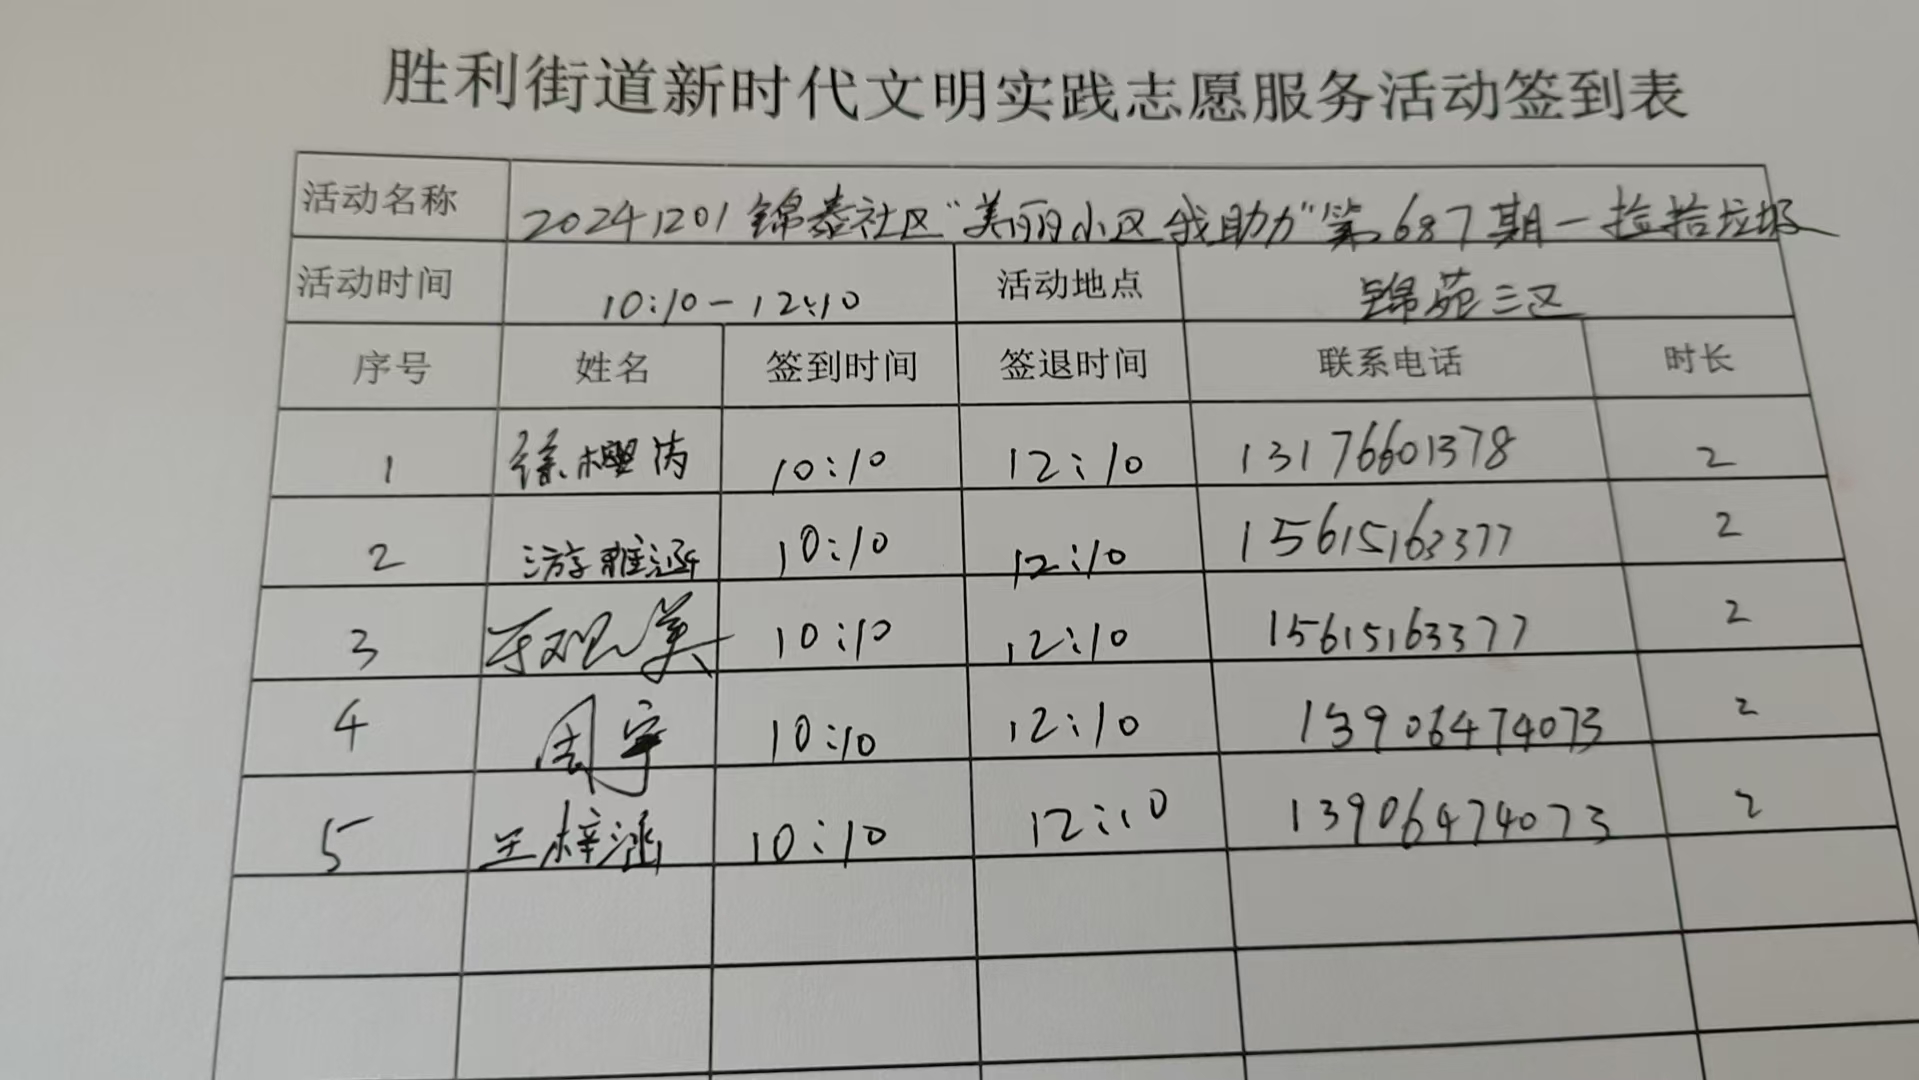 胜利街道新时代文明实践志愿服务活动签到表
活动名称 20241201锦泰社区“美丽小区我助力”第687期一捡拾垃圾
活动时间 10:10-12:10 活动地点 锦苑三区
序号 姓名 签到时间 签退时间 联系电话 时长
1 徐樱 10:10 12:10 13176601378 2
2 游雅涵 10:10 12:10 15615163377 2
3 美 10:10 12:10 15615163377 2
4 周宇 10:10 12:10 13906474073 2
5 王梓涵 10:10 12:10 13906474073 2